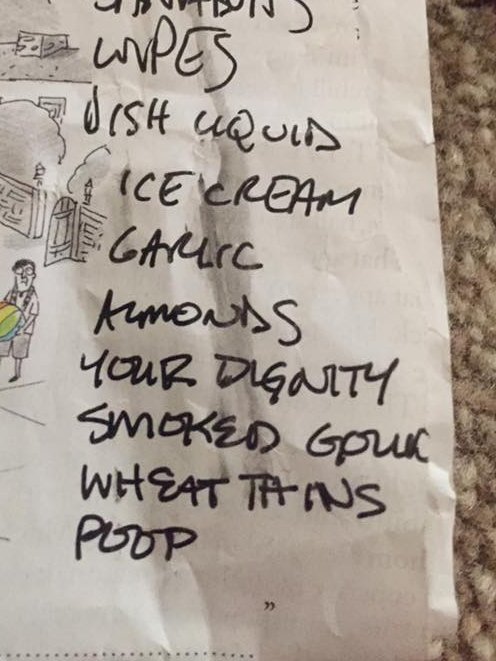 WIPES
DISH LIQUID
ICE CREAM
GARLIC
ALMONDS
YOUR DIGNITY
SMOKED GOUK
WHEAT THINS
POOP
”